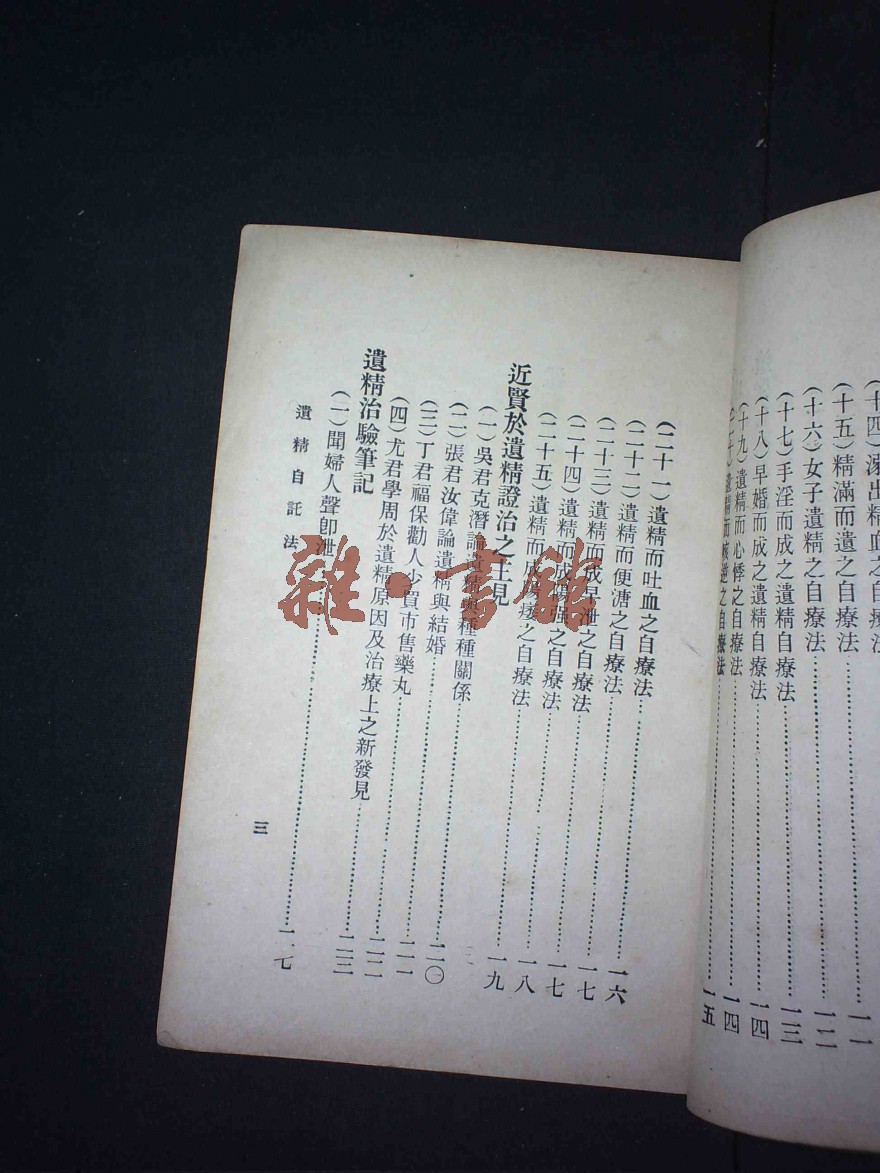 (十五)精滿而遺之自療法……一一
(十六)女子遺精之自療法……一二
(十七)手淫而成之遺精自療法……一三
(十八)早婚而成之遺精自療法……一四
(十九)遺精而心悸之自療法……一四
(二十)遺精而咳逆之自療法……一五
(二十一)遺精而吐血之自療法……一六
(二十二)遺精而便溏之自療法……一七
(二十三)遺精而成早泄之自療法……一七
(二十四)遺精而成陽强之自療法……一八
(二十五)遺精而成陽痿之自療法……一九
近賢於遺精證治之主見
(一)吳君克潛論遺精與種種關係……二〇
(二)張君汝偉論遺精與結婚……二一
(三)丁君福保勸人少買市售藥丸……二二
(四)尤君學周於遺精原因及治療上之新發見……二三
遺精治驗筆記
(一)聞婦人聲卽泄……一七
遺精自託法
三
雜·書館